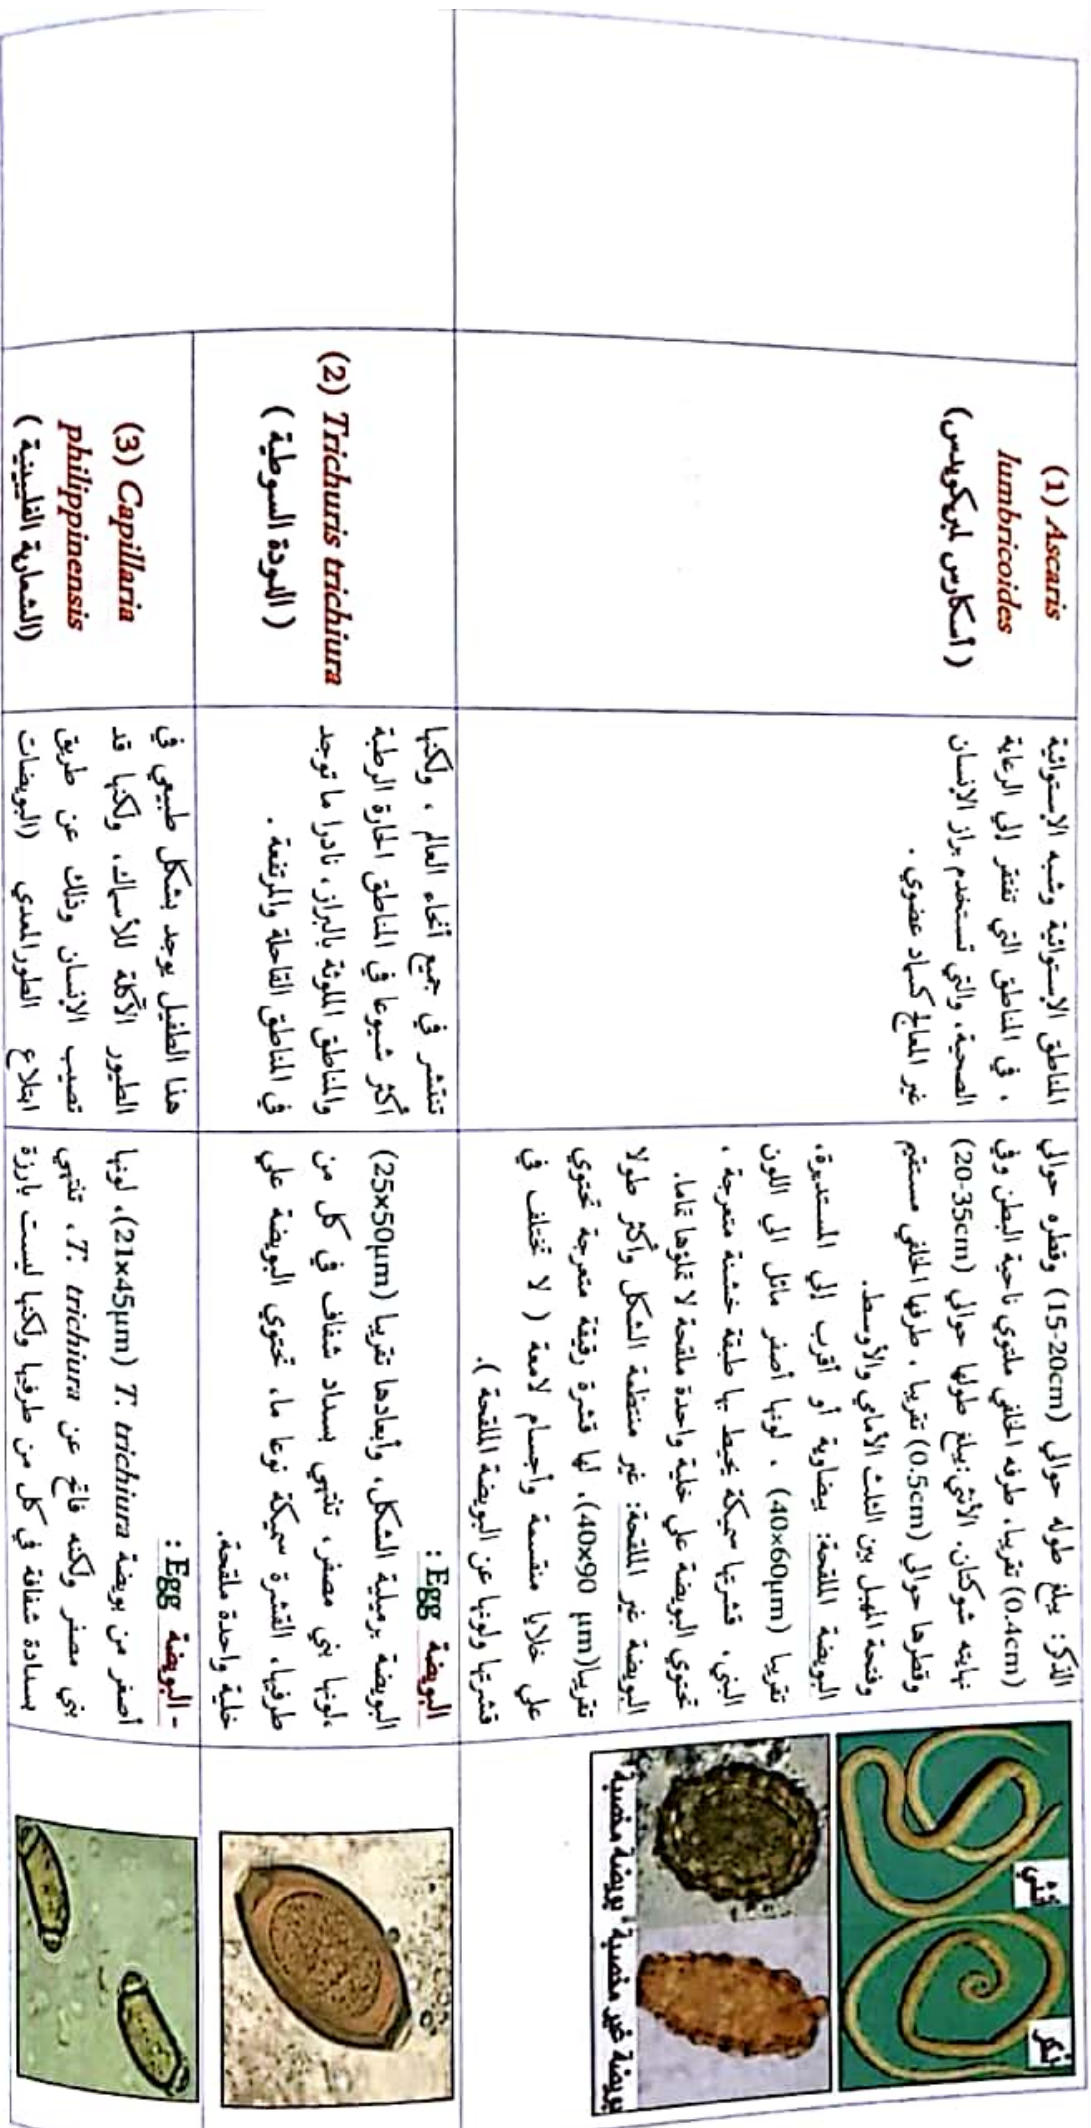 (1) Ascaris
lumbricoides
( أسكارس لمبريكويدس)
المناطق الإستوائية وشبه الإستوائية
، في المناطق التي تفتقر إلي الرعاية
الصحية، والتي تستخدم براز الإنسان
غير المعالج كسماد عضوي .
الذكر: يبلغ طوله حوالي (15-20cm) وقطره حوالي
(0.4cm) تقريبا، طرفه الخلفي ملتوي ناحية البطن وفي
نهايته شوكتان. الأنثي:يبلغ طولها حوالي (20-35cm)
وقطرها حوالي (0.5cm) تقريبا ، طرفها الخلفي مستقيم
وفتحة المهبل بين الثلث الأمامي والأوسط.
البويضة الملقحة: بيضاوية أو أقرب إلي المستديرة،
تقريبا (40x60µm) ، لونها أصفر مائل الي اللون
البني، قشرتها سميكة يحيط بها طبقة خشنة متعرجة ،
تحتوي البويضة علي خلية واحدة ملقحة لا تملؤها تماما.
البويضة غير الملقحة: غير منتظمة الشكل وأكثر طولا
تقريبا(40x90 µm)، لها قشرة رقيقة متعرجة تحتوي
علي خلايا منقسمة وأجسام لامعة ( لا تختلف في
قشرتها ولونها عن البويضة الملقحة ).
أنثي
ذكر
بويضة مخصبة
بويضة غير مخصبة
(2) Trichuris trichiura
( الدودة السوطية )
تنتشر في جميع أنحاء العالم ، ولكنها
أكثر شيوعا في المناطق الحارة الرطبة
والمناطق الملوثة بالبراز، نادرا ما توجد
في المناطق القاحلة والمرتفعة .
البويضة Egg :
البويضة برميلية الشكل، وأبعادها تقريبا (25x50µm)
،لونها بني مصفر، تنتهي بسداد شفاف في كل من
طرفيها، القشرة سميكة نوعا ما، تحتوي البويضة علي
خلية واحدة ملقحة.
(3) Capillaria
philippinensis
(الشعارية الفليبينية )
هذا الطفيل يوجد بشكل طبيعي في
الطيور الآكلة للأسماك، ولكنها قد
تصيب الإنسان وذلك عن طريق
ابتلاع الطورالمعدي (البويضات
-البويضة Egg :
أصغر من بويضة T. trichiura (21x45µm)، لونها
بني مصفر ولكنه فاتح عن T. trichiura، تنتهي
بسدادة شفافة في كل من طرفيها ولكنها ليست بارزة